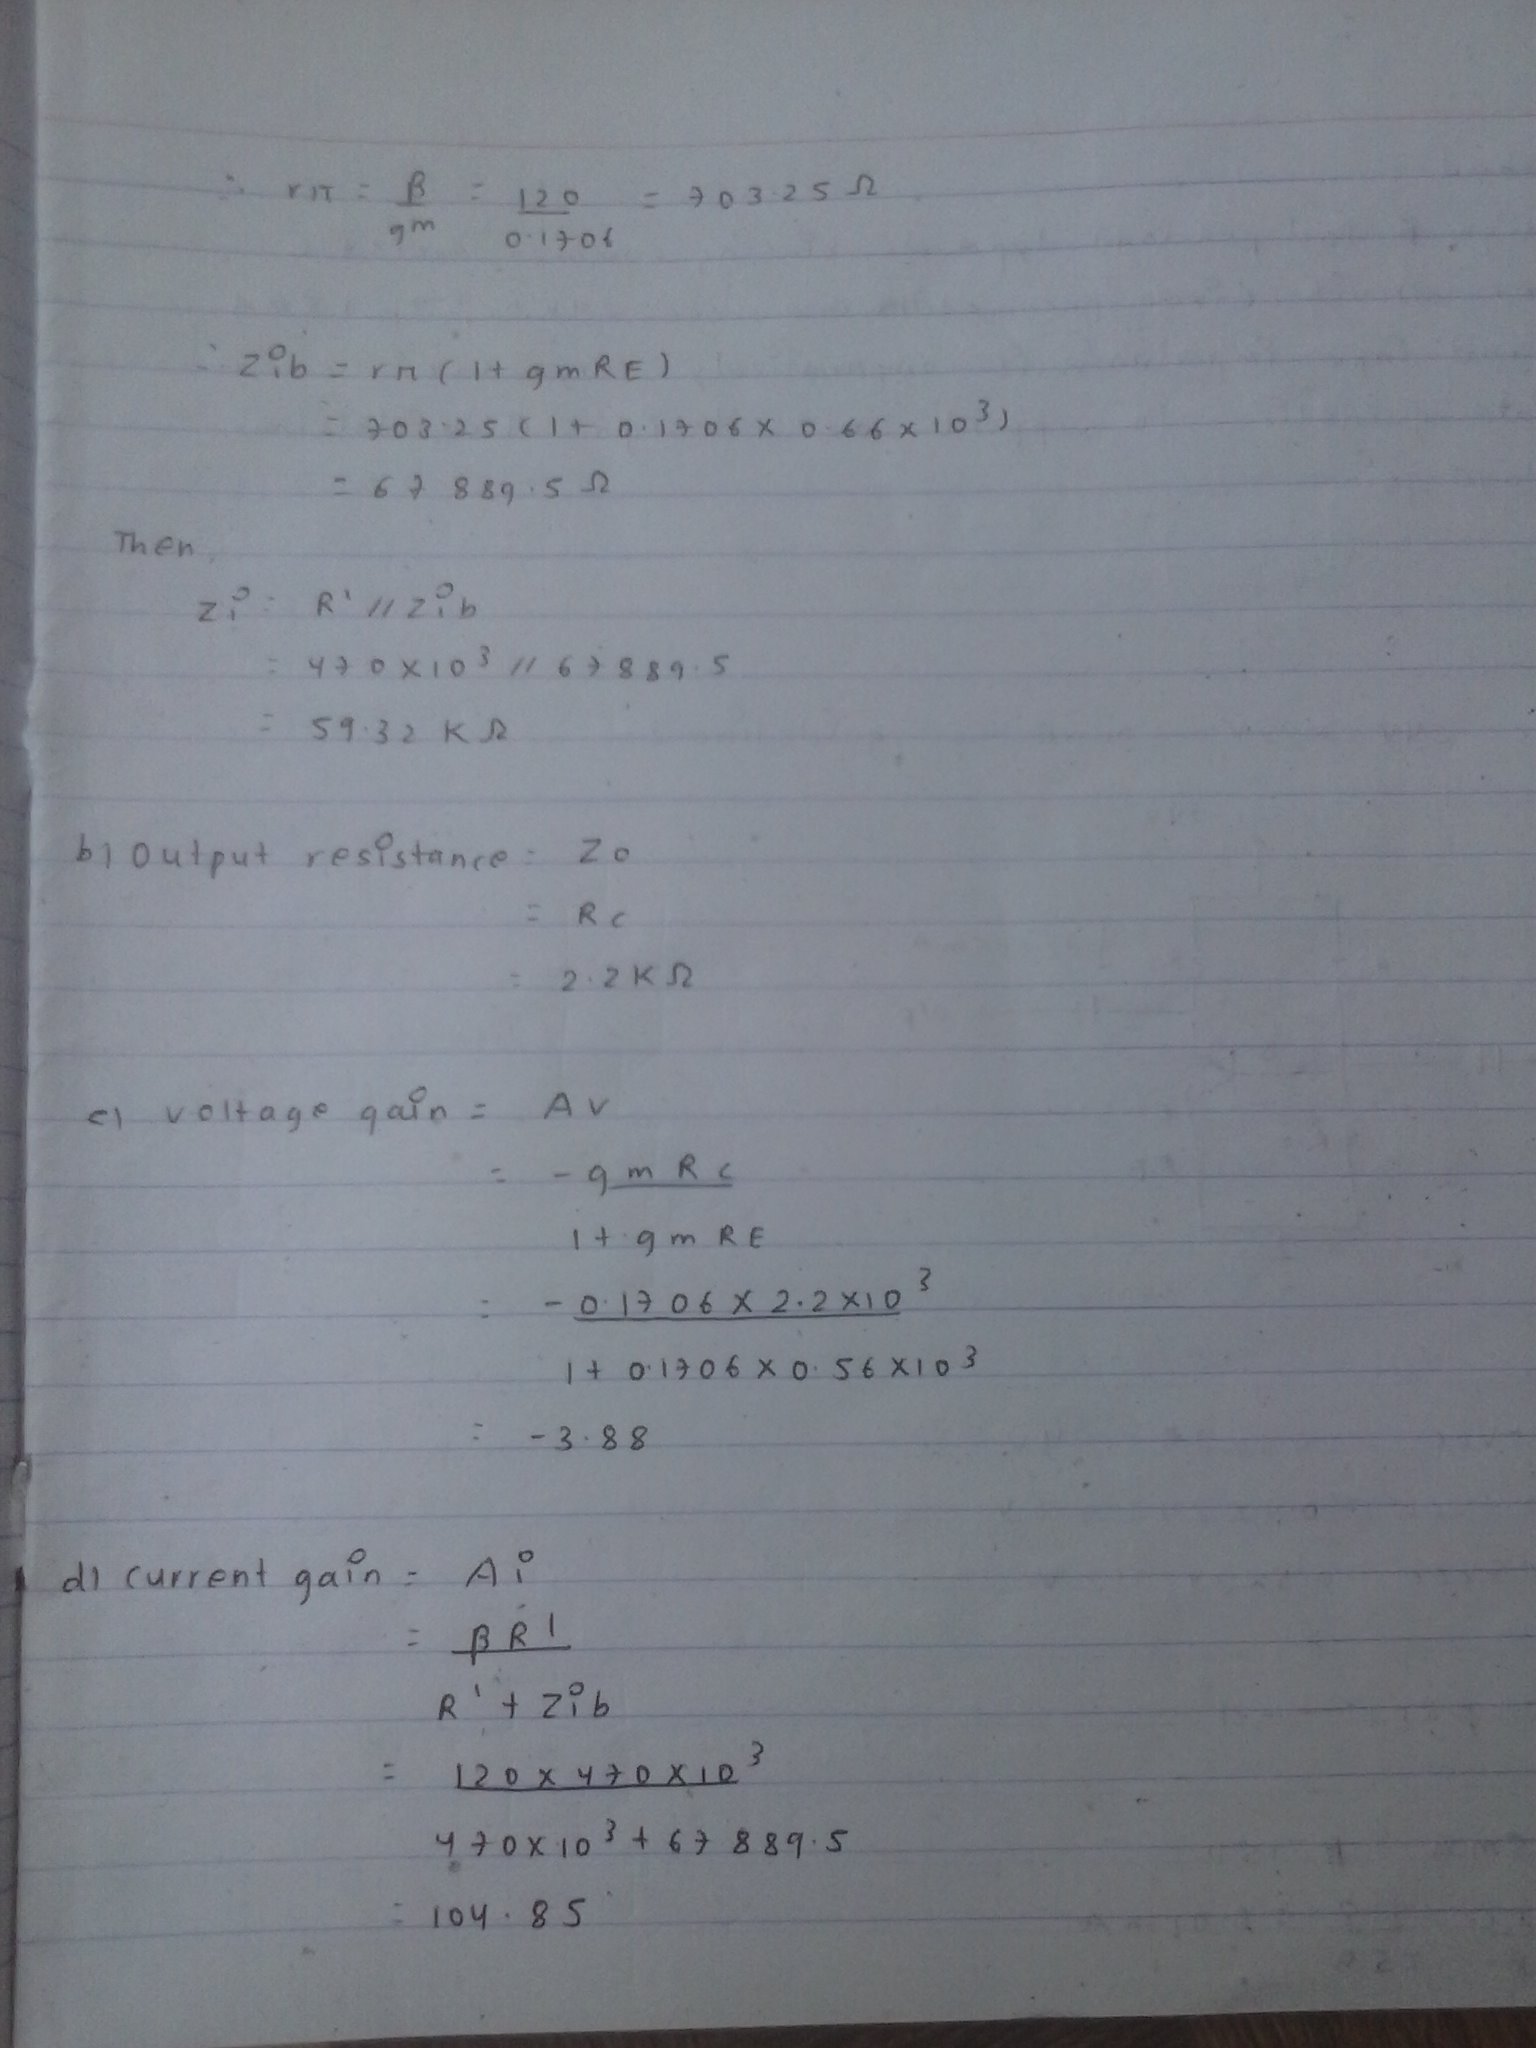 ∴ rπ = β/gm = 120/0.1706 = 703.25 Ω
∴ Zib = rπ (1 + gmRE)
= 703.25 (1 + 0.1706 × 0.66 × 10³)
= 67889.5 Ω
Then,
Zi = R' // Zib
= 470 × 10³ // 67889.5
= 59.32 KΩ
b) Output resistance = Zo
= Rc
= 2.2 KΩ
c) voltage gain = Av
= - gm Rc
1 + gm RE
= - 0.1706 × 2.2 × 10³
1 + 0.1706 × 0.56 × 10³
= -3.88
d) current gain = Ai
= βR'
R' + Zib
= 120 × 470 × 10³
470 × 10³ + 67889.5
= 104.85